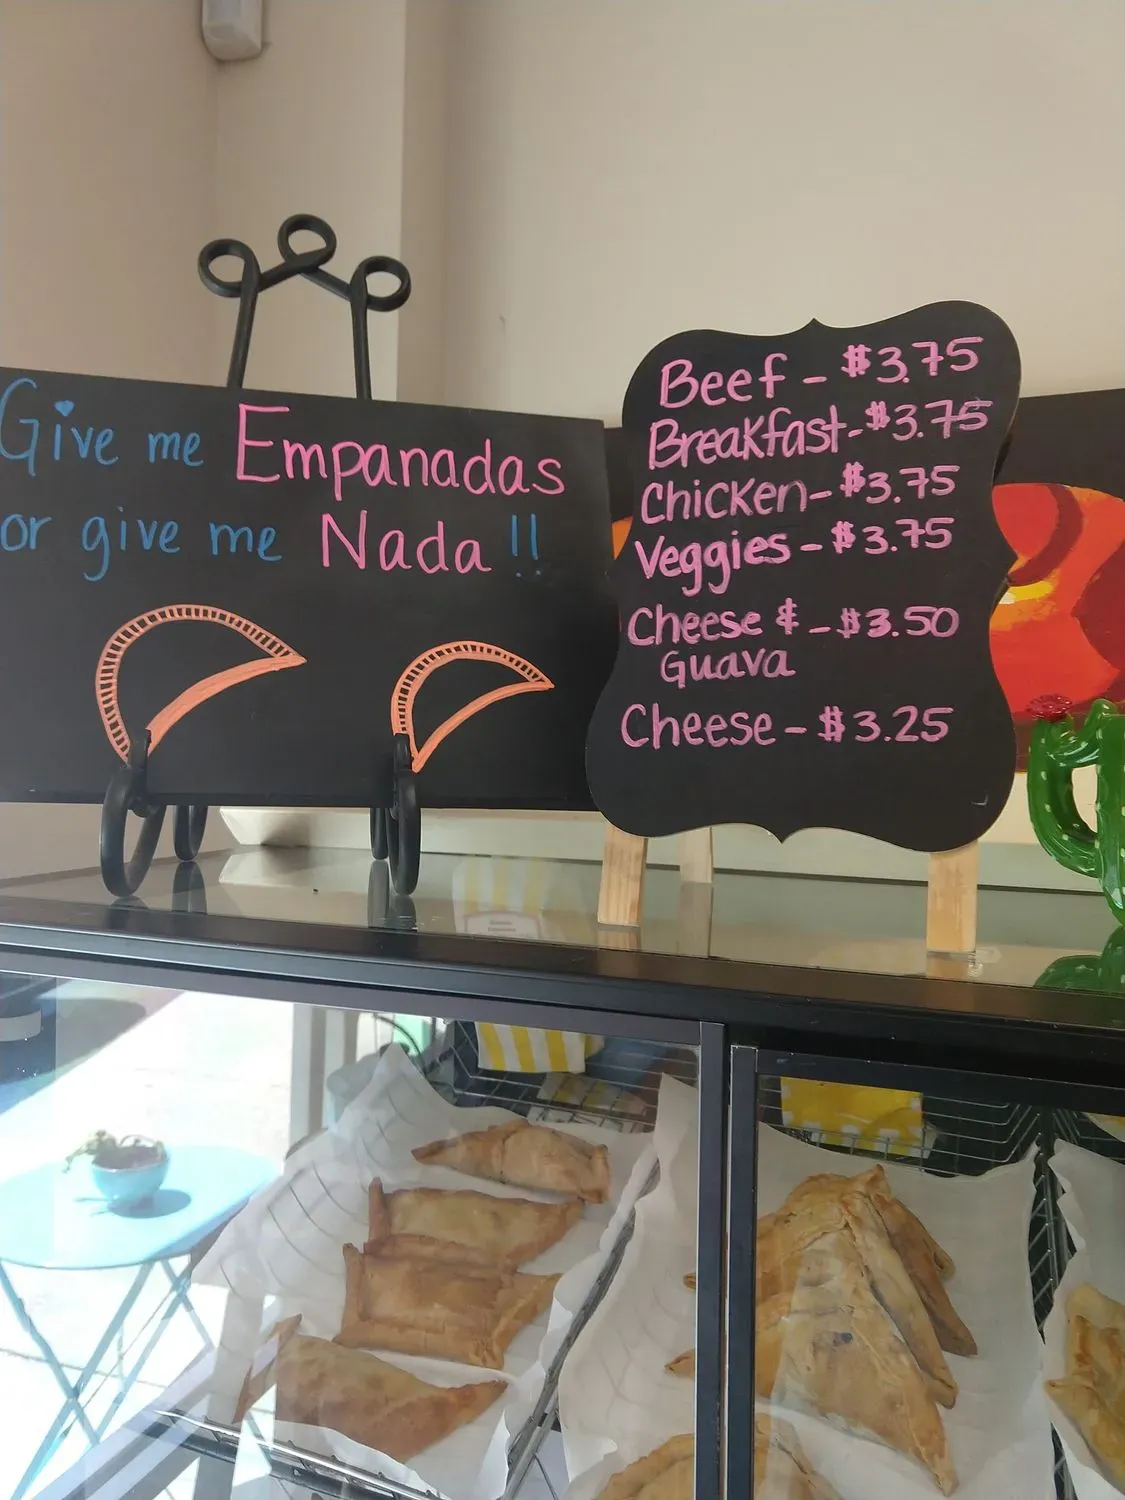 Give me Empanadas
or give me Nada !!
Beef - $3.75
Breakfast - $3.75
Chicken - $3.75
Veggies - $3.75
Cheese & - $3.50
Guava
Cheese - $3.25